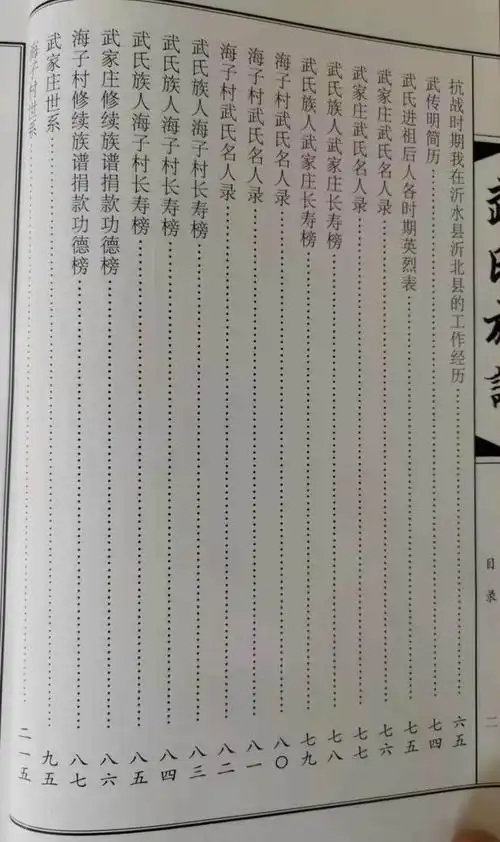 武氏族谱
目录
二
抗战时期我在沂水县沂北县的工作经历……六五
武传明简历……七四
武氏进祖后人各时期英烈表……七五
武家庄武氏名人录……七六
武家庄武氏名人录……七七
武氏族人武家庄长寿榜……七八
武氏族人武家庄长寿榜……七九
海子村武氏名人录……八〇
海子村武氏名人录……八一
海子村武氏名人录……八二
武氏族人海子村长寿榜……八三
武氏族人海子村长寿榜……八四
武氏族人海子村长寿榜……八五
武家庄修续族谱捐款功德榜……八六
海子村修续族谱捐款功德榜……八七
武家庄世系……九五
海子村世系……二一五